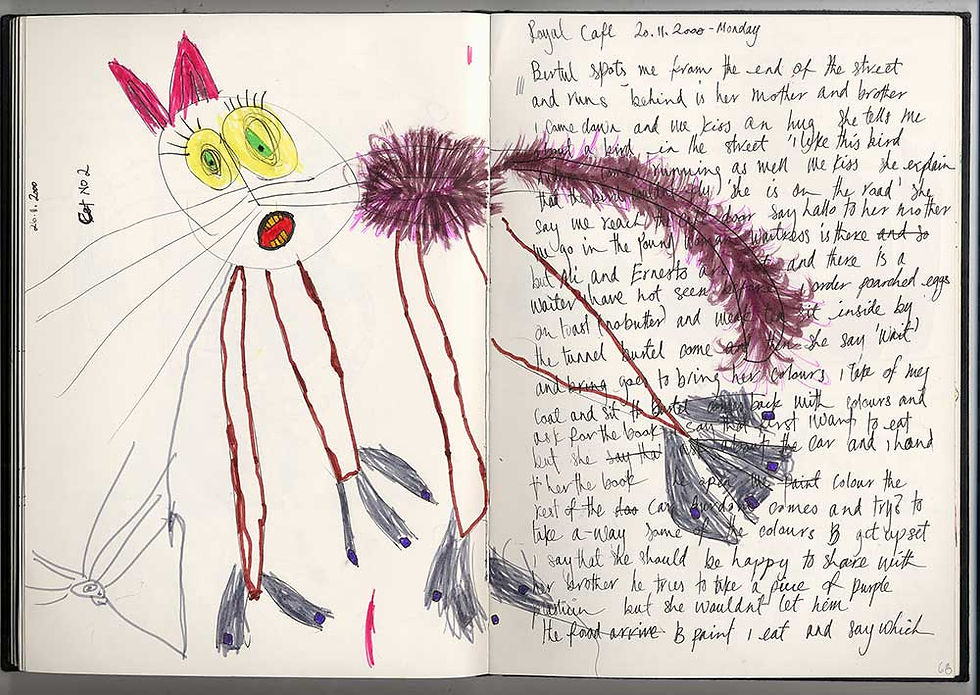 20.11.2000
Cat No 2
Royal Cafe 20.11.2000 - Monday
Bertul spots me from the end of the street
and runs behind is her mother and brother
i came down and we kiss an hug she tells me
a bird in the street 'i lyke this bird
running as well we kiss she explain
that the bird 'she is on the road' she
say we reach the door say hallo to her mother
we go in the waitress is there and so
but Ali and Ernesto are and there is a
waiter i have not seen before i order poarched eggs
on toast (no butter) and weak tea sit inside by
the tunnel come she say 'Wait'
and bring goes to bring her colours i take of my
coat and sit back with colours and
ask for the book i say that first i want to eat
but she say tha the car and i hand
her the book she open the paint colour the
rest of the car comes and try's to
take a-way some of the colours B got upset
i say that she should be happy to share with
her brother he tries to take a piece of purple
but she wouldnt let him
the food arrive B paint i eat and say which
68